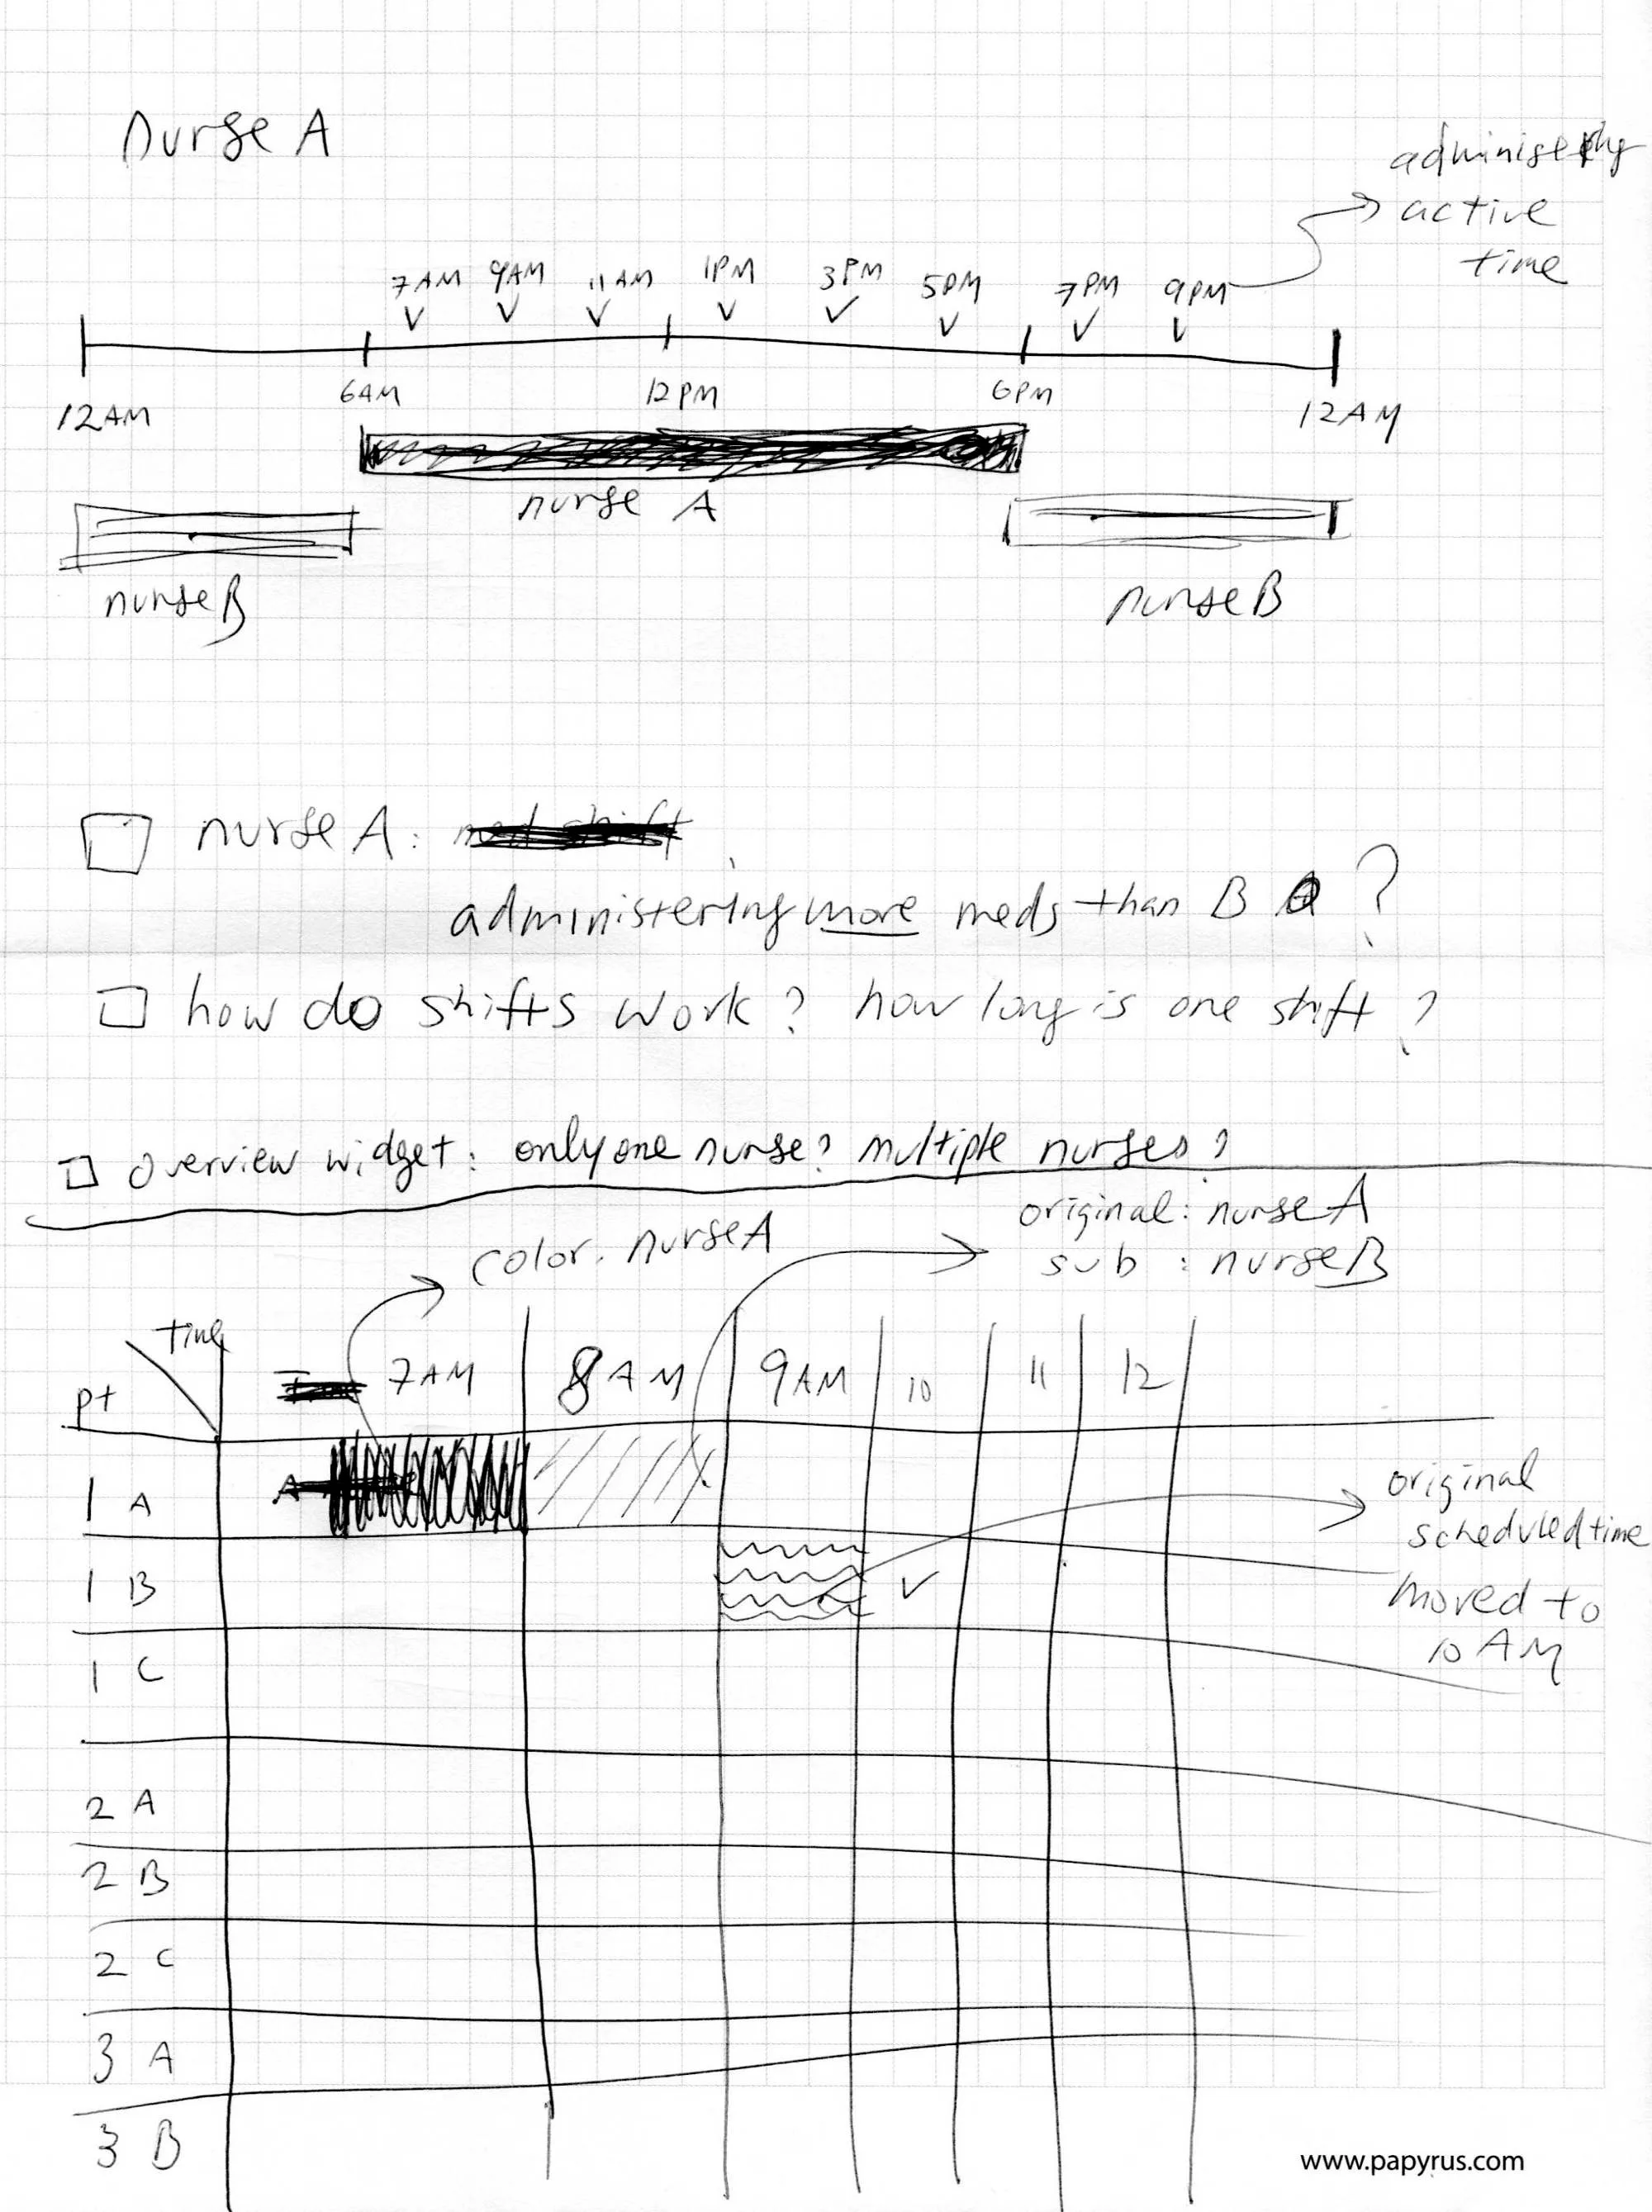 nurse A
administering
active
time
7AM 9AM 11AM 1PM 3PM 5PM 7PM 9PM
12AM 6AM 12PM 6PM 12AM
nurse A
nurse B nurse B
nurse A:
administering more meds than B ?
how do shifts work? how long is one shift?
overview widget: only one nurse? multiple nurses?
original: nurse A
color: nurse A
sub : nurse B
time
pt 7AM 8AM 9AM 10 11 12
1 A
original
scheduled time
1 B
moved to
10 AM
1 C
2 A
2 B
2 C
3 A
3 B
www.papyrus.com